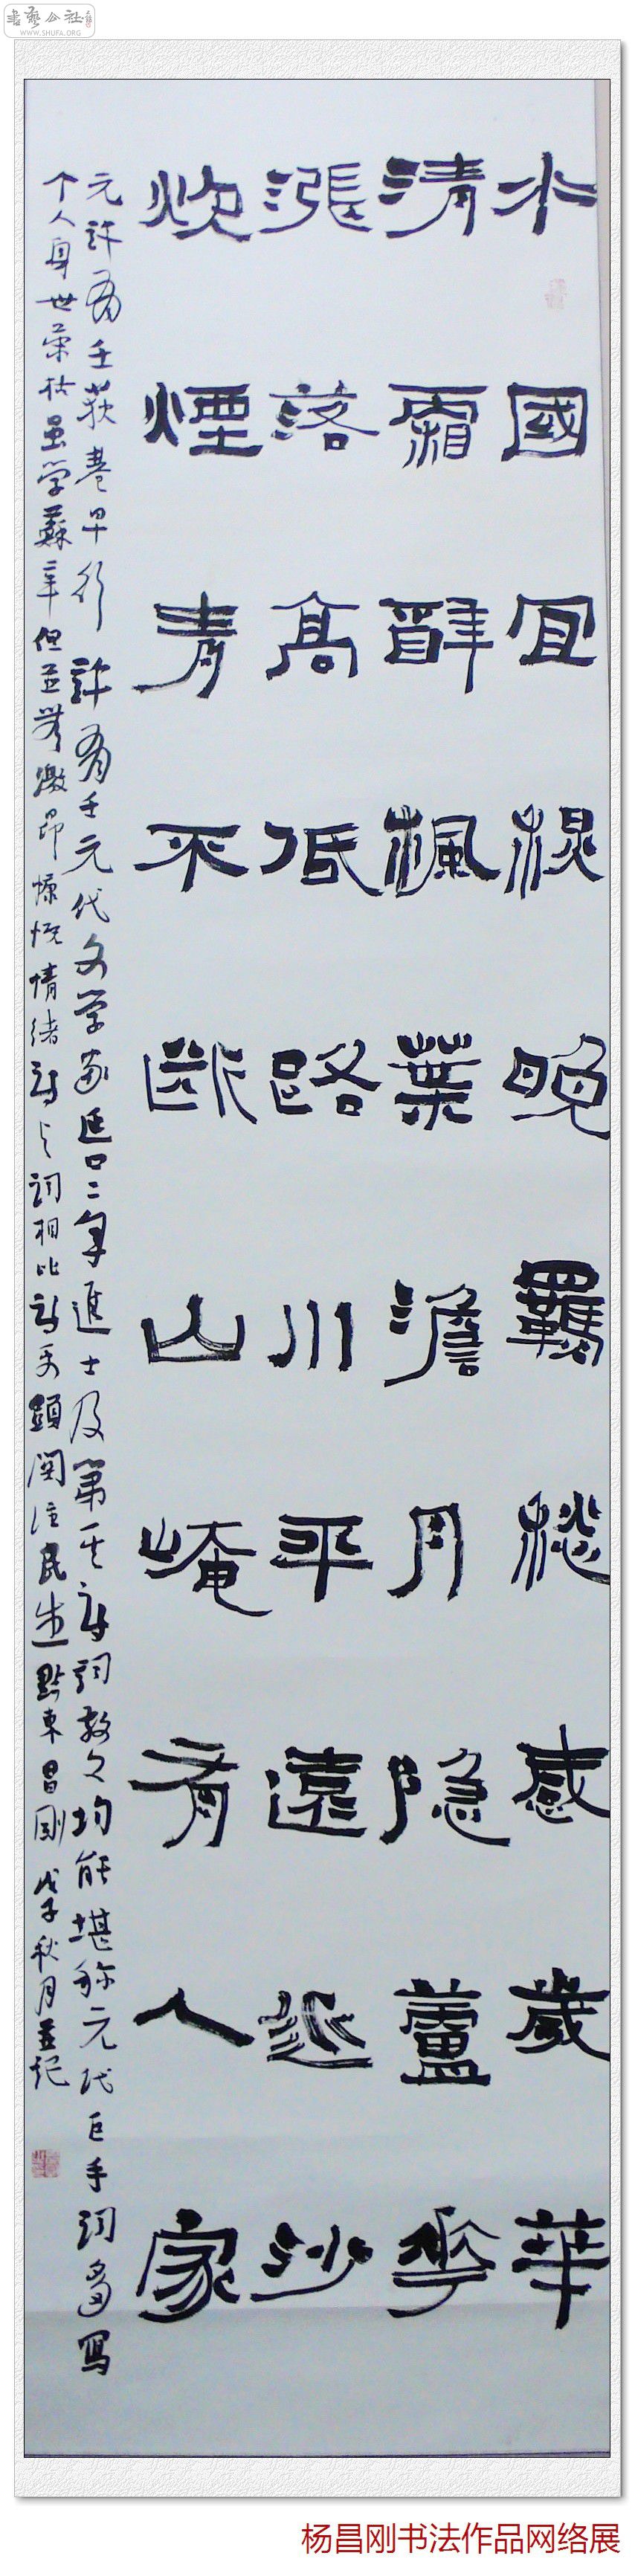 書藝公社
WWW.SHUFA.ORG
水國宜榥晚羈愁感歲華
清霜辭楓葉澹月隐蘆花
漲落高低路川平遠近沙
炊煙青不斷山崦有人家
元許有壬荻巷早行 許有壬元代文学家延二年進士及第其詩詞散文均能堪称元代巨手詞多寫
个人身世荣枯虽学蘇辛但並無激昂慷慨情緒詩与詞相比詩更顕関注民生一點東昌剛戊子秋月並記
杨昌刚书法作品网络展